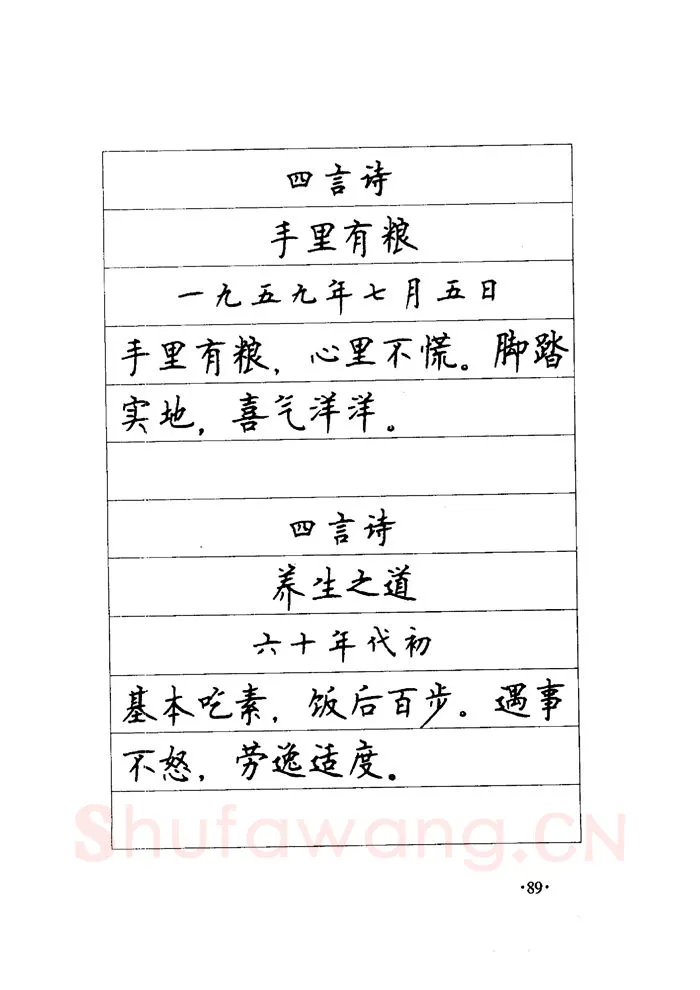 四言诗
手里有粮
一九五九年七月五日
手里有粮，心里不慌。脚踏
实地，喜气洋洋。
四言诗
养生之道
六十年代初
基本吃素，饭后百步。遇事
不怒，劳逸适度。
Shufawang.CN
·89·